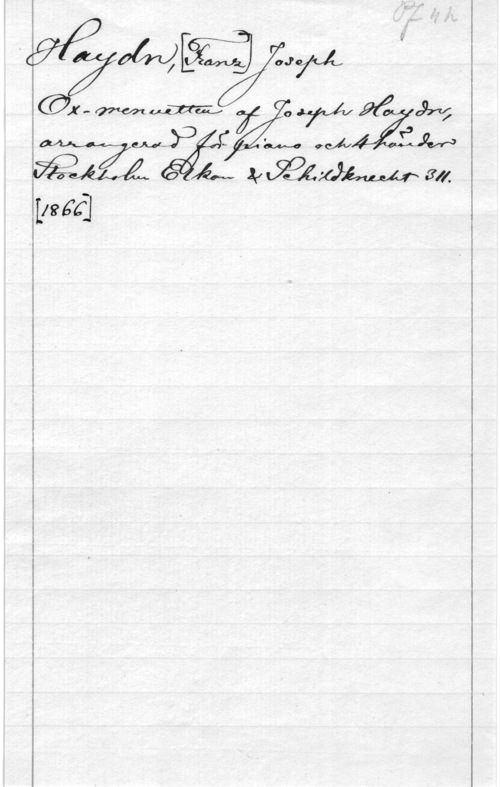 Pf 4h
Haydn, [Franz] Joseph
Ox-menuetten af Joseph Haydn,
arrangerad för piano och 4 händer
Stockholm Elkan & Schildknecht 311.
[1866]